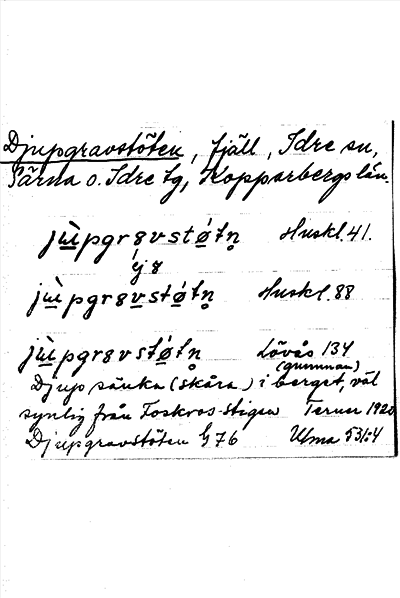 Djupgravstöten, fjäll, Idre sn,
Särna o. Idre tg, Kopparbergs län.
jùpgrȣvstǿtn̥ Huskl. 41.
éj ȣ
jùpgrȣvstǿtn̥ Huskl. 88
jùpgrȣvstǿtn̥ Lövås 134
(gumman)
Djup sänka (skåra) i berget, väl
synlig från Foskros-stigen Terner 1920
Djupgravstöten G 76 Ulma 531:4